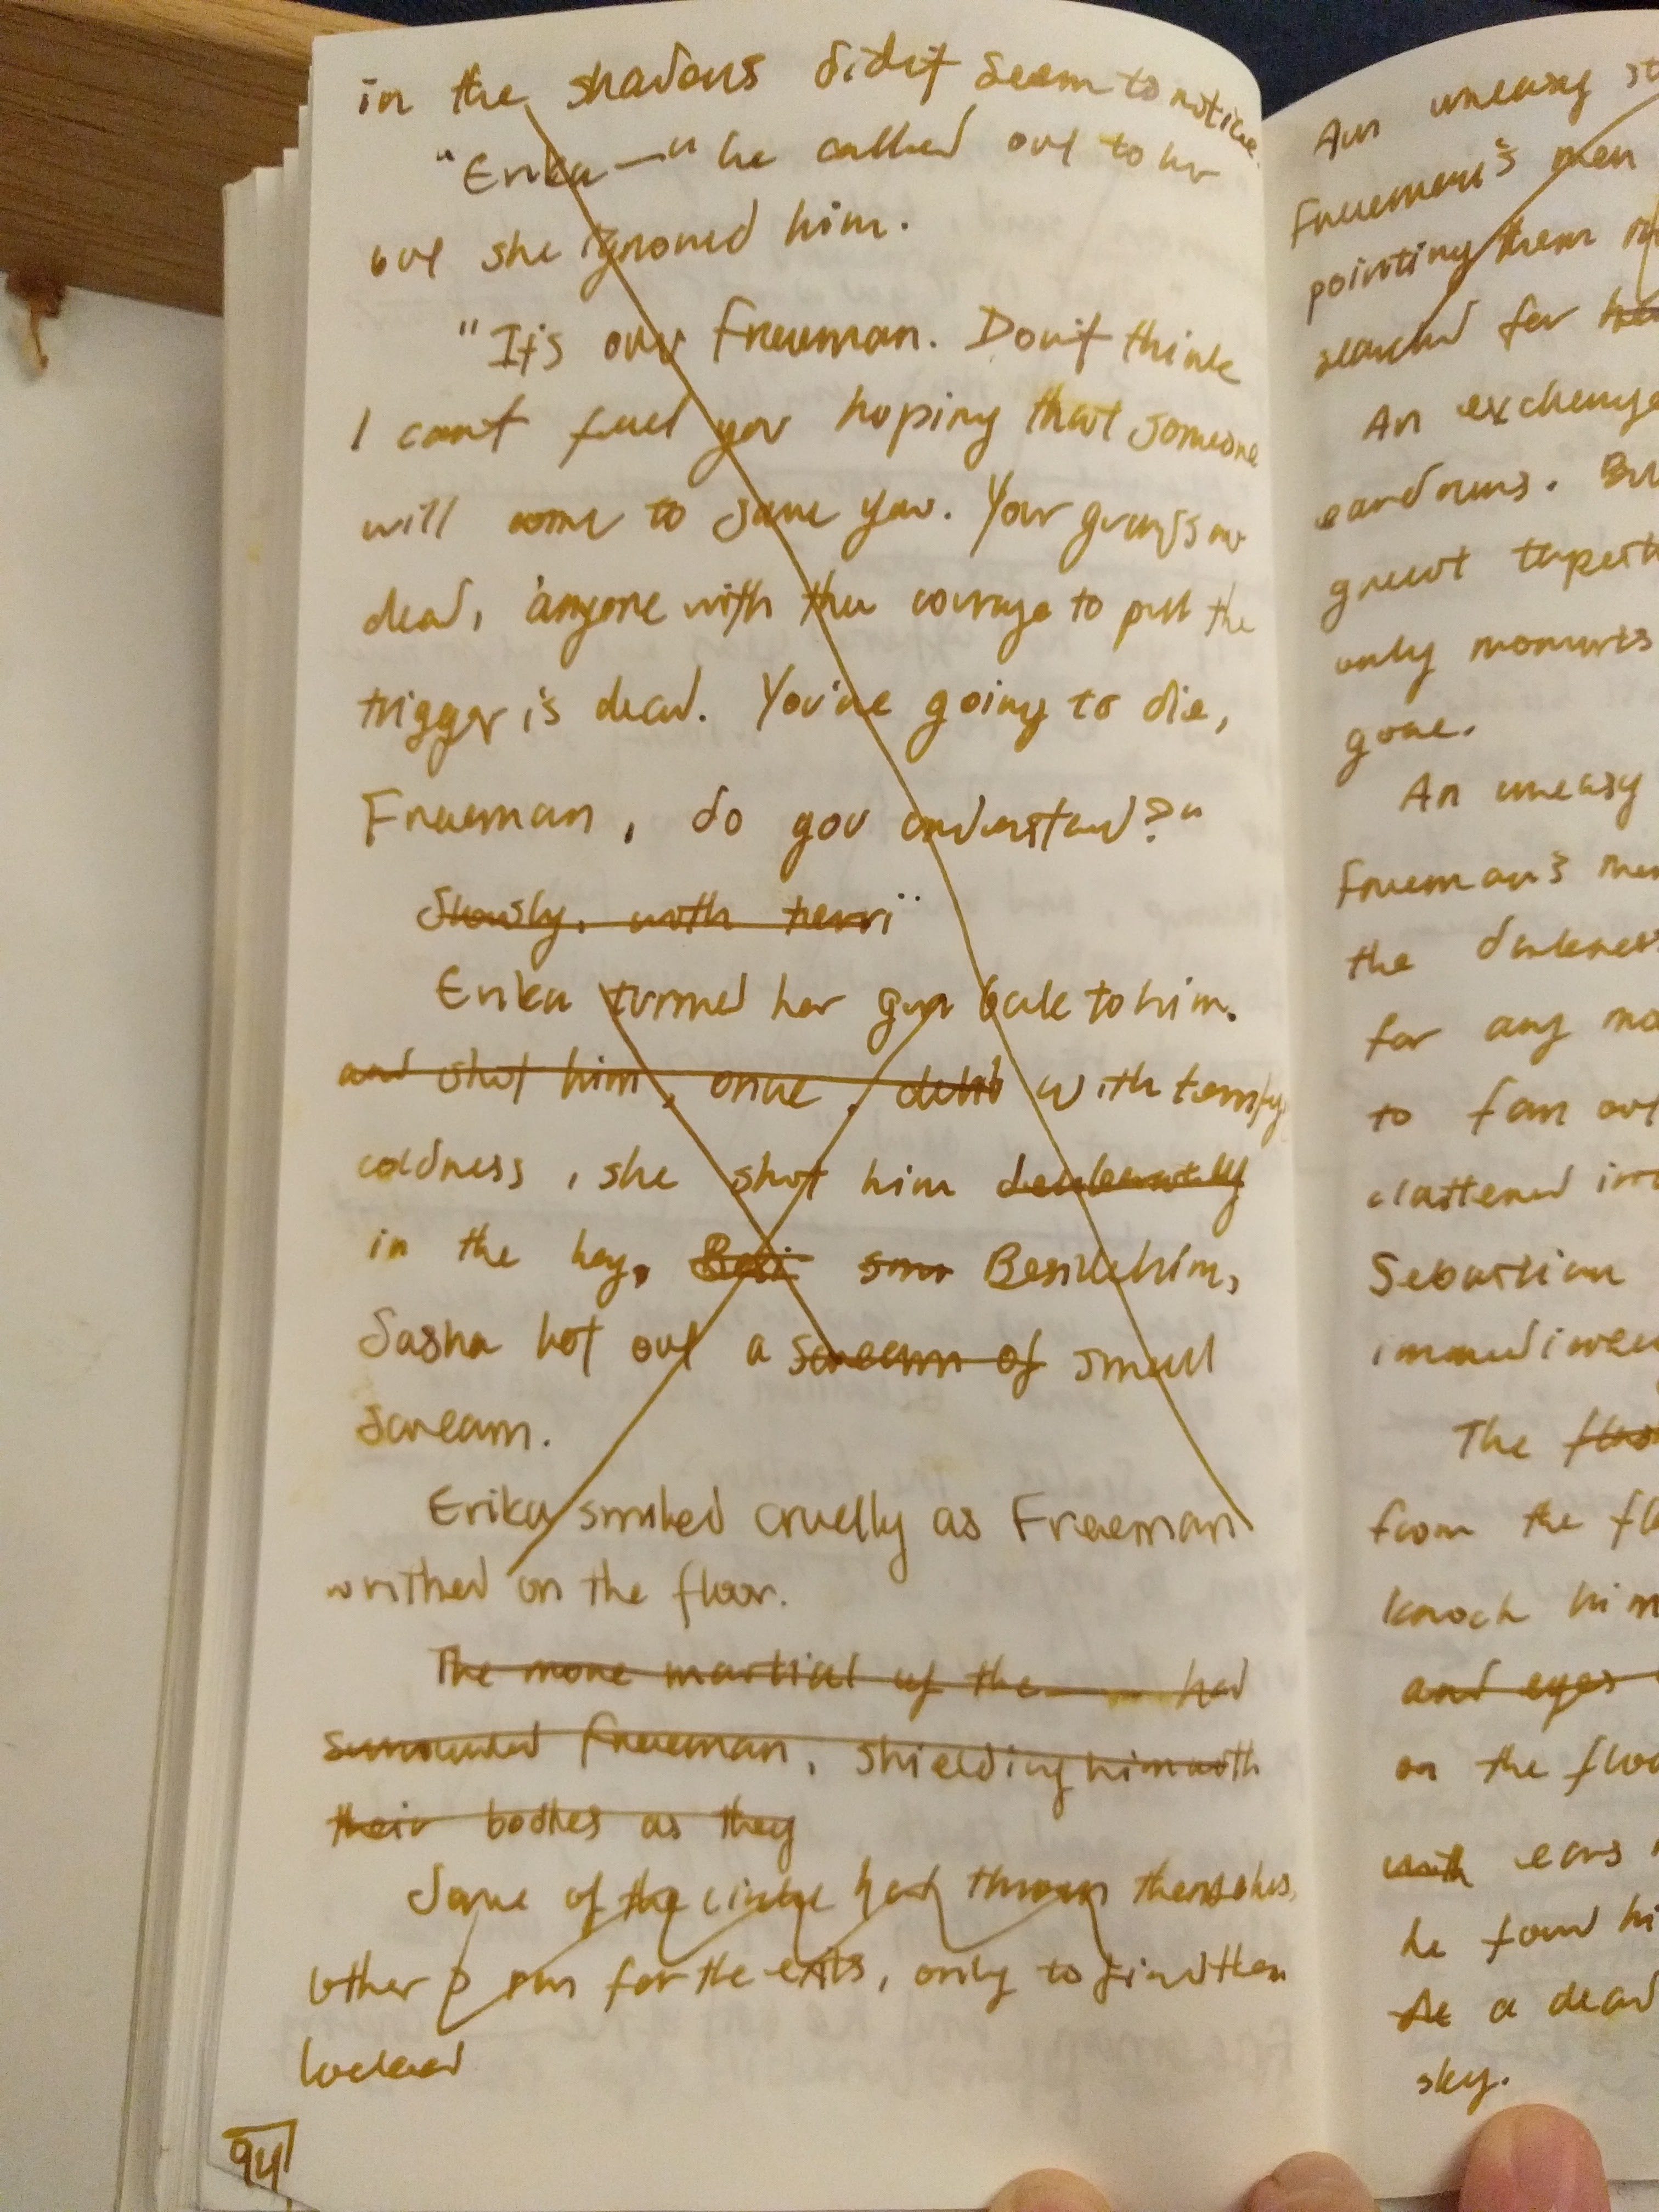 in the shadows didn't seem to notice.
"Erika—" he called out to her
but she ignored him.
"It's over Freeman. Don't think
I can't feel you hoping that someone
will come to save you. Your guards are
dead, anyone with the courage to pull the
trigger is dead. You're going to die,
Freeman, do you understand?"
Slowly, with terri
Erika turned her gun back to him.
and shot him, once, with terrifying
coldness, she shot him deliberately
in the leg. Besi Beside him,
Sasha let out a scream of small
scream.
Erika smiled cruelly as Freeman
writhed on the floor.
The more martial of the had
surrounded Freeman, shielding him with
their bodies as they
Some of the circle had thrown themselves
other run for the exits, only to find them
locked
94
An uneasy
Freeman's men
pointing them
searched for
An exchange
eardrums.
great
only moments
gone.
An uneasy
Freeman's
the darkness
for any
to fan out
clattered
Sebastian
The
from the
knock him
and eyes
on the
with ears
he
a dead
sky.